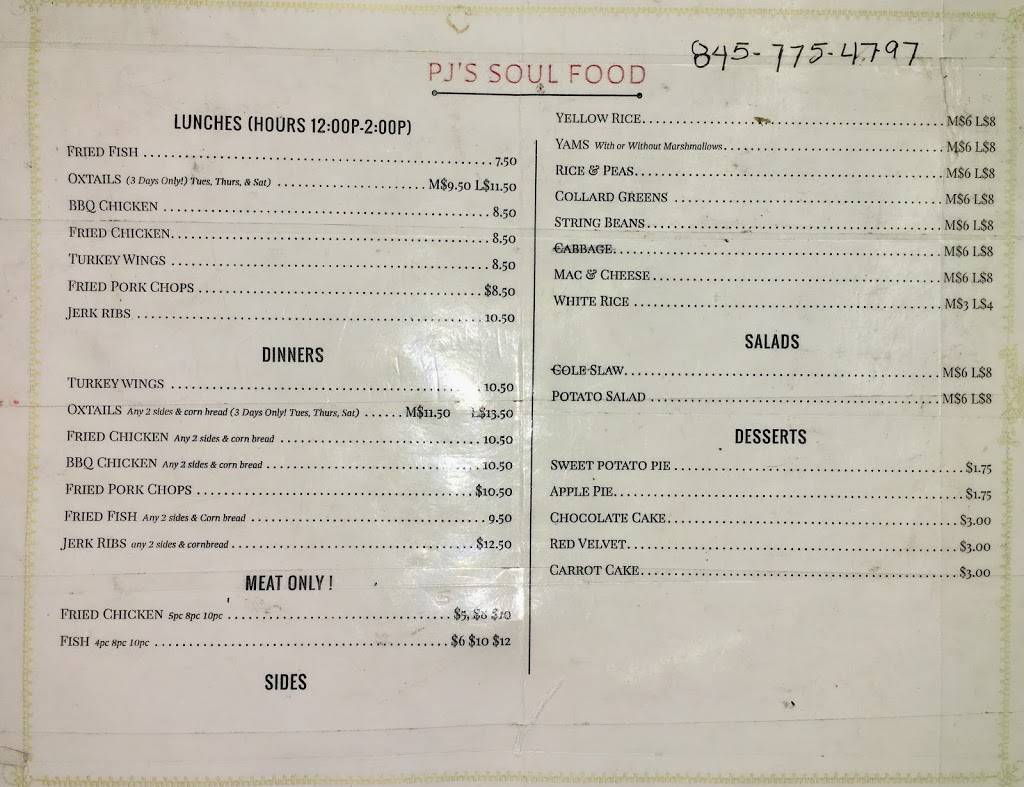 845-775-4797
PJ'S SOUL FOOD
LUNCHES (HOURS 12:00P-2:00P)
FRIED FISH 7.50
OXTAILS (3 Days Only!) Tues, Thurs, & Sat) M$9.50 L$11.50
BBQ CHICKEN 8.50
FRIED CHICKEN 8.50
TURKEY WINGS 8.50
FRIED PORK CHOPS $8.50
JERK RIBS 10.50
DINNERS
TURKEY WINGS 10.50
OXTAILS Any 2 sides & corn bread (3 Days Only! Tues, Thurs, Sat) M$11.50 L$13.50
FRIED CHICKEN Any 2 sides & corn bread 10.50
BBQ CHICKEN Any 2 sides & corn bread 10.50
FRIED PORK CHOPS $10.50
FRIED FISH Any 2 sides & Corn bread 9.50
JERK RIBS any 2 sides & cornbread $12.50
MEAT ONLY !
FRIED CHICKEN 5pc 8pc 10pc $5, $8 $10
FISH 4pc 8pc 10pc $6 $10 $12
SIDES
YELLOW RICE M$6 L$8
YAMS With or Without Marshmallows M$6 L$8
RICE & PEAS M$6 L$8
COLLARD GREENS M$6 L$8
STRING BEANS M$6 L$8
CABBAGE M$6 L$8
MAC & CHEESE M$6 L$8
WHITE RICE M$3 L$4
SALADS
COLE SLAW M$6 L$8
POTATO SALAD M$6 L$8
DESSERTS
SWEET POTATO PIE $1.75
APPLE PIE $1.75
CHOCOLATE CAKE $3.00
RED VELVET $3.00
CARROT CAKE $3.00